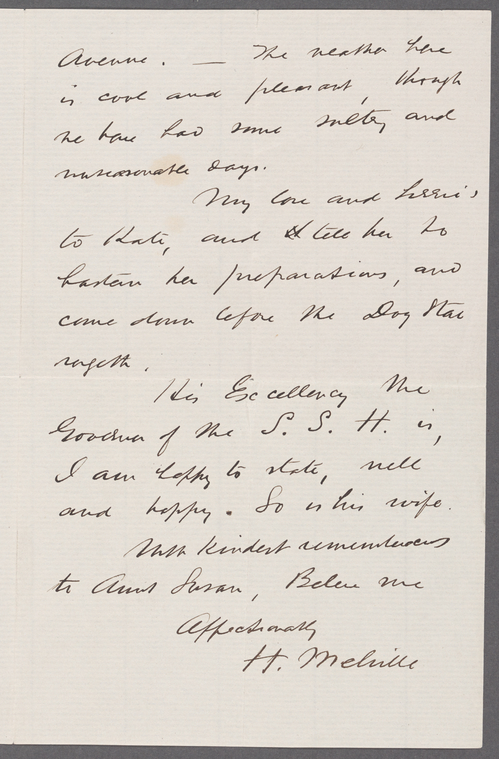 Avenue. — The weather here
is cool and pleasant, though
we have had some sultry and
unseasonable days.
My love and Lizzie's
to Kate, and tell her to
hasten her preparations, and
come down before the Dog Star
rageth.
His Excellency the
Governor of the S. S. H. is,
I am happy to state, well
and happy. So is his wife.
With kindest remembrances
to Aunt Susan, Believe me
Affectionately
H. Melville